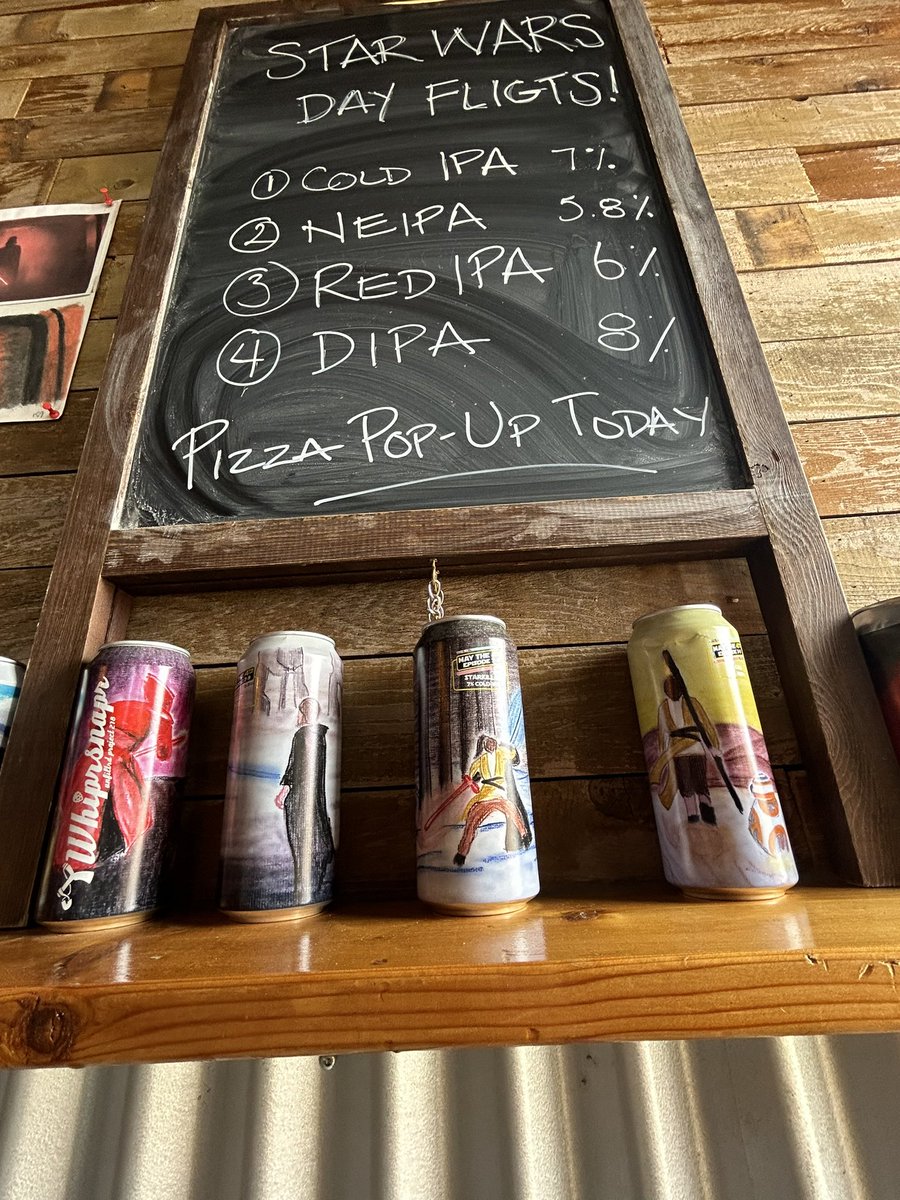 STAR WARS
DAY FLIGTS!
① COLD IPA 7%
② NEIPA 5.8%
③ RED IPA 6%
④ DIPA 8%
PIZZA POP-UP TODAY
Whiprsnapr
MAY THE
EPISODE
STARKILL
7% COLD